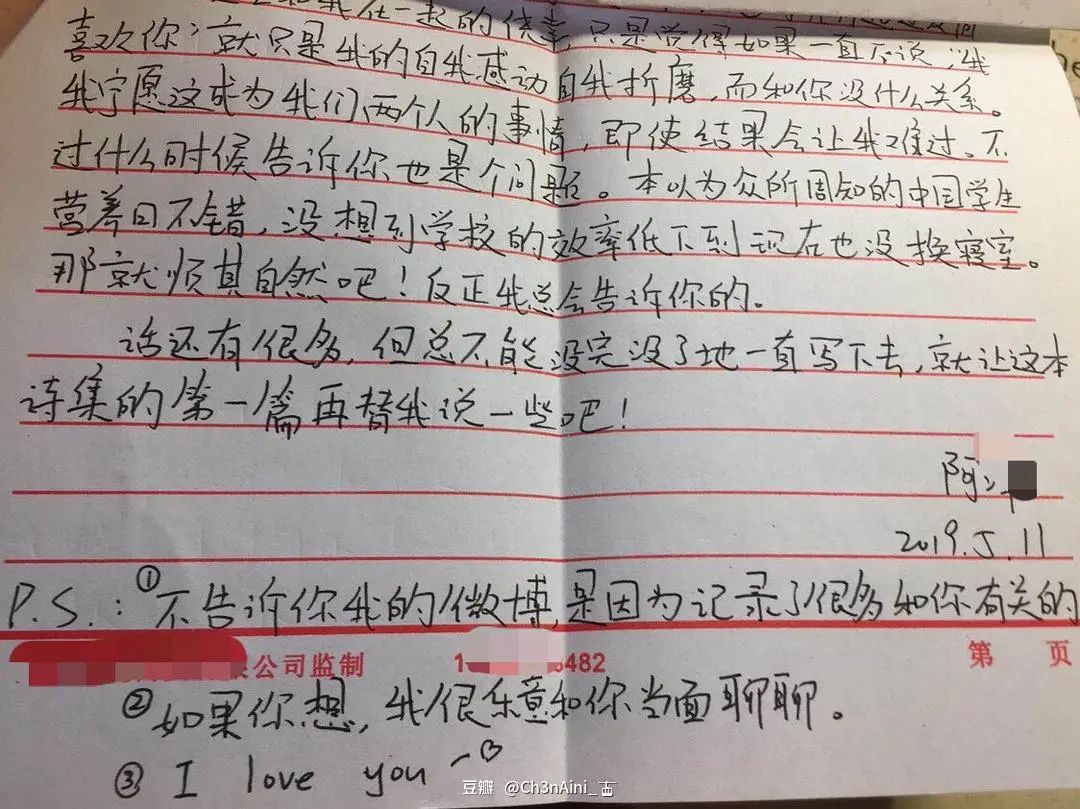 和我在一起的侥幸,只是觉得如果一直不说,‘我
喜欢你’就只是我的自我感动自我折磨,而和你没什么关系。
我宁愿这成为我们两个人的事情,即使结果会让我难过。不
过什么时候告诉你也是个问题。本以为众所周知的中国学生
营养日不错,没想到学校的效率低下到现在也没换寝室。
那就顺其自然吧!反正我总会告诉你的。
话还有很多,但总不能没完没了地一直写下去,就让这本
诗集的第一篇再替我说一些吧!
阿
2019.5.11
P.S.:①不告诉你我的微博,是因为记录了很多和你有关的
公司监制 1 482 第 页
②如果你想,我很乐意和你当面聊聊。
③I love you
豆瓣 @Ch3nAini_